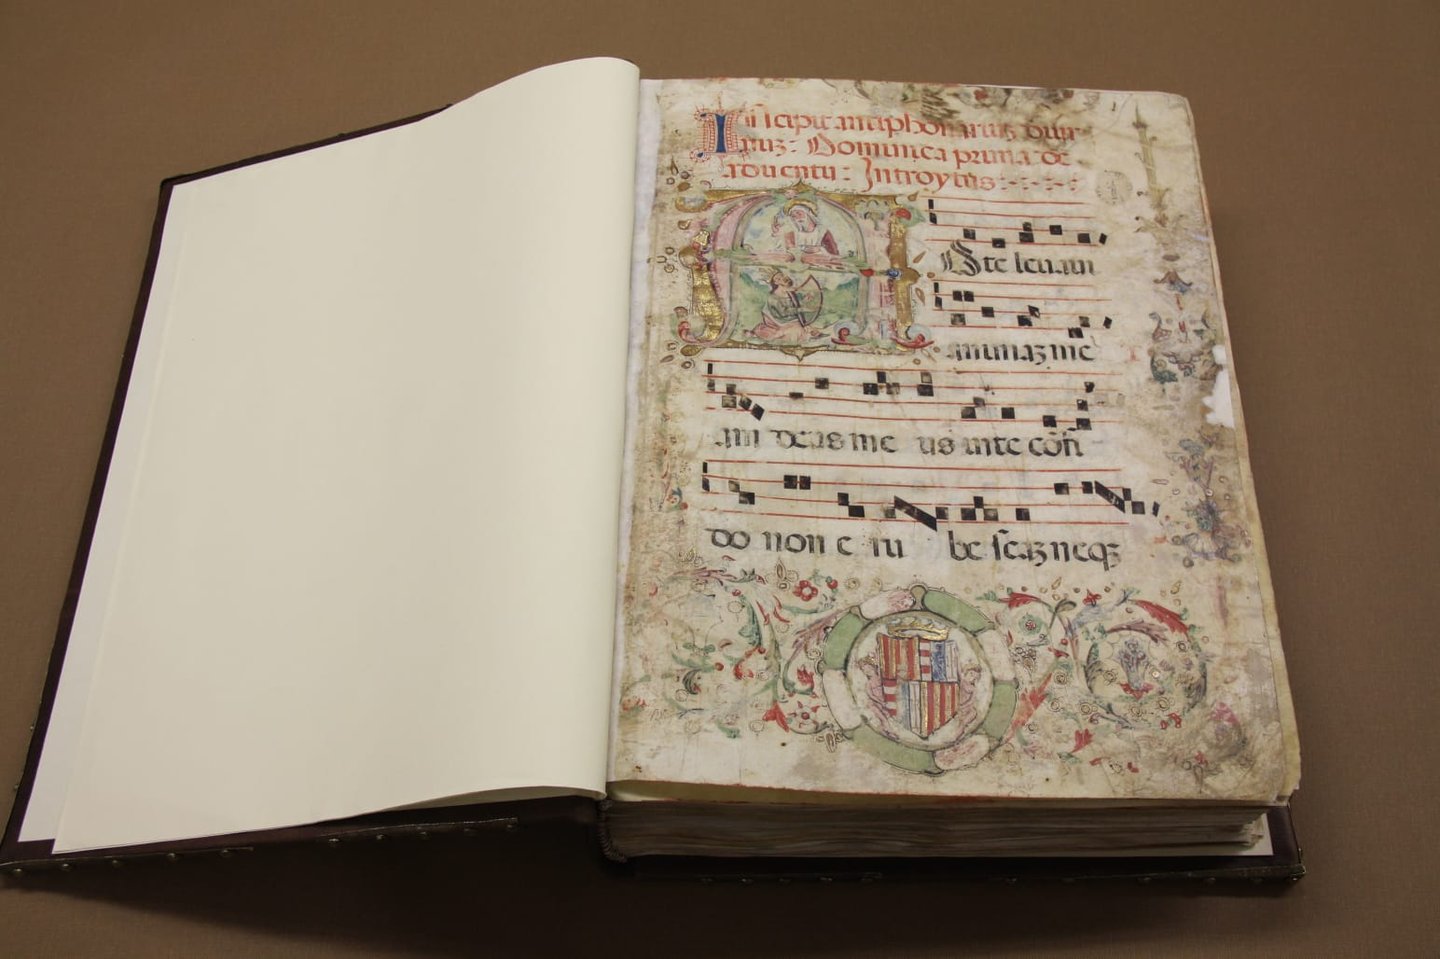 Incipit antiphonariuz diur
nuz: Dominica prima de
aduentu: Introytus
A
d te leuaui
animaz me
am deus me us in te cōfi
do non e ru be scaz neqз